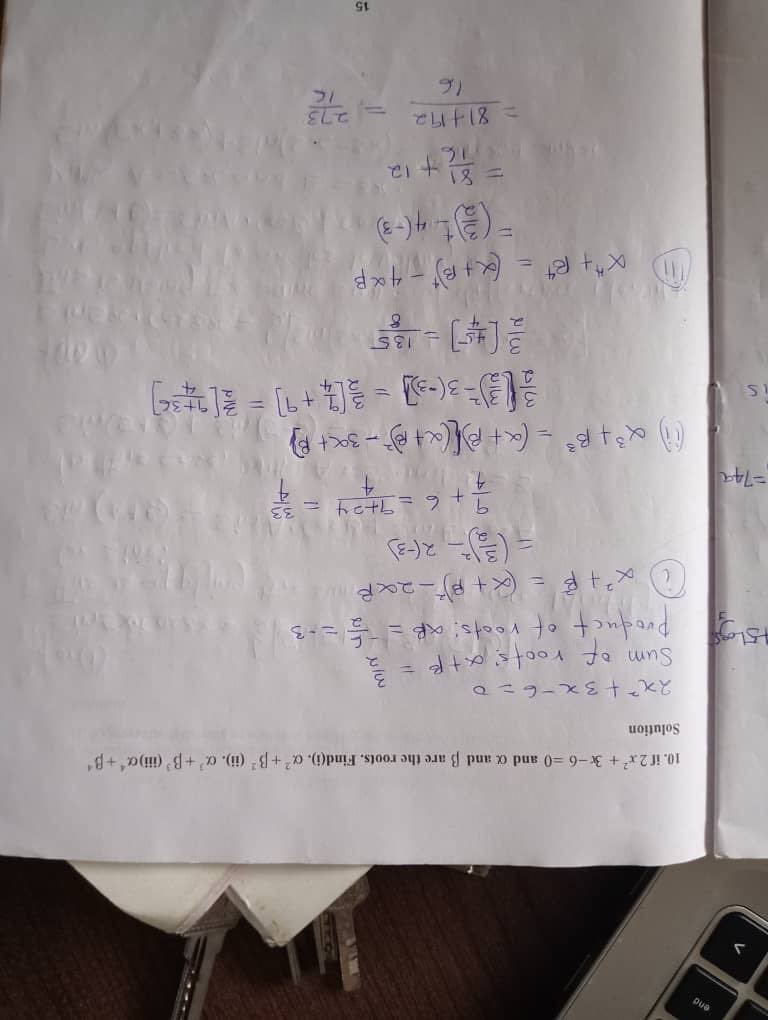 end
10. if 2x² + 3x−6 =0 and α and β are the roots. Find(i). α² + β² (ii). α³ + β³ (iii)α⁴ + β⁴
Solution
2x² + 3x − 6 = 0
Sum of roots: α+β = 3/2
product of roots: αβ = -6/2 = -3
(i) α² + β² = (α + β)² − 2αβ
= (3/2)² − 2(-3)
9/4 + 6 = 9+24/4 = 33/4
(ii) α³ + β³ = (α + β)[(α + β)² − 3α + β]
3/2[(3/2)² − 3(-3)] = 3/2[9/4 + 9] = 3/2[9+36/4]
3/2[45/4] = 135/8
(iii) α⁴ + β⁴ = (α + β)⁴ − 4αβ
= (3/2)⁴ − 4(-3)
= 81/16 + 12
= 81+192/16 = 273/16
15
+5Log5
=74a
is